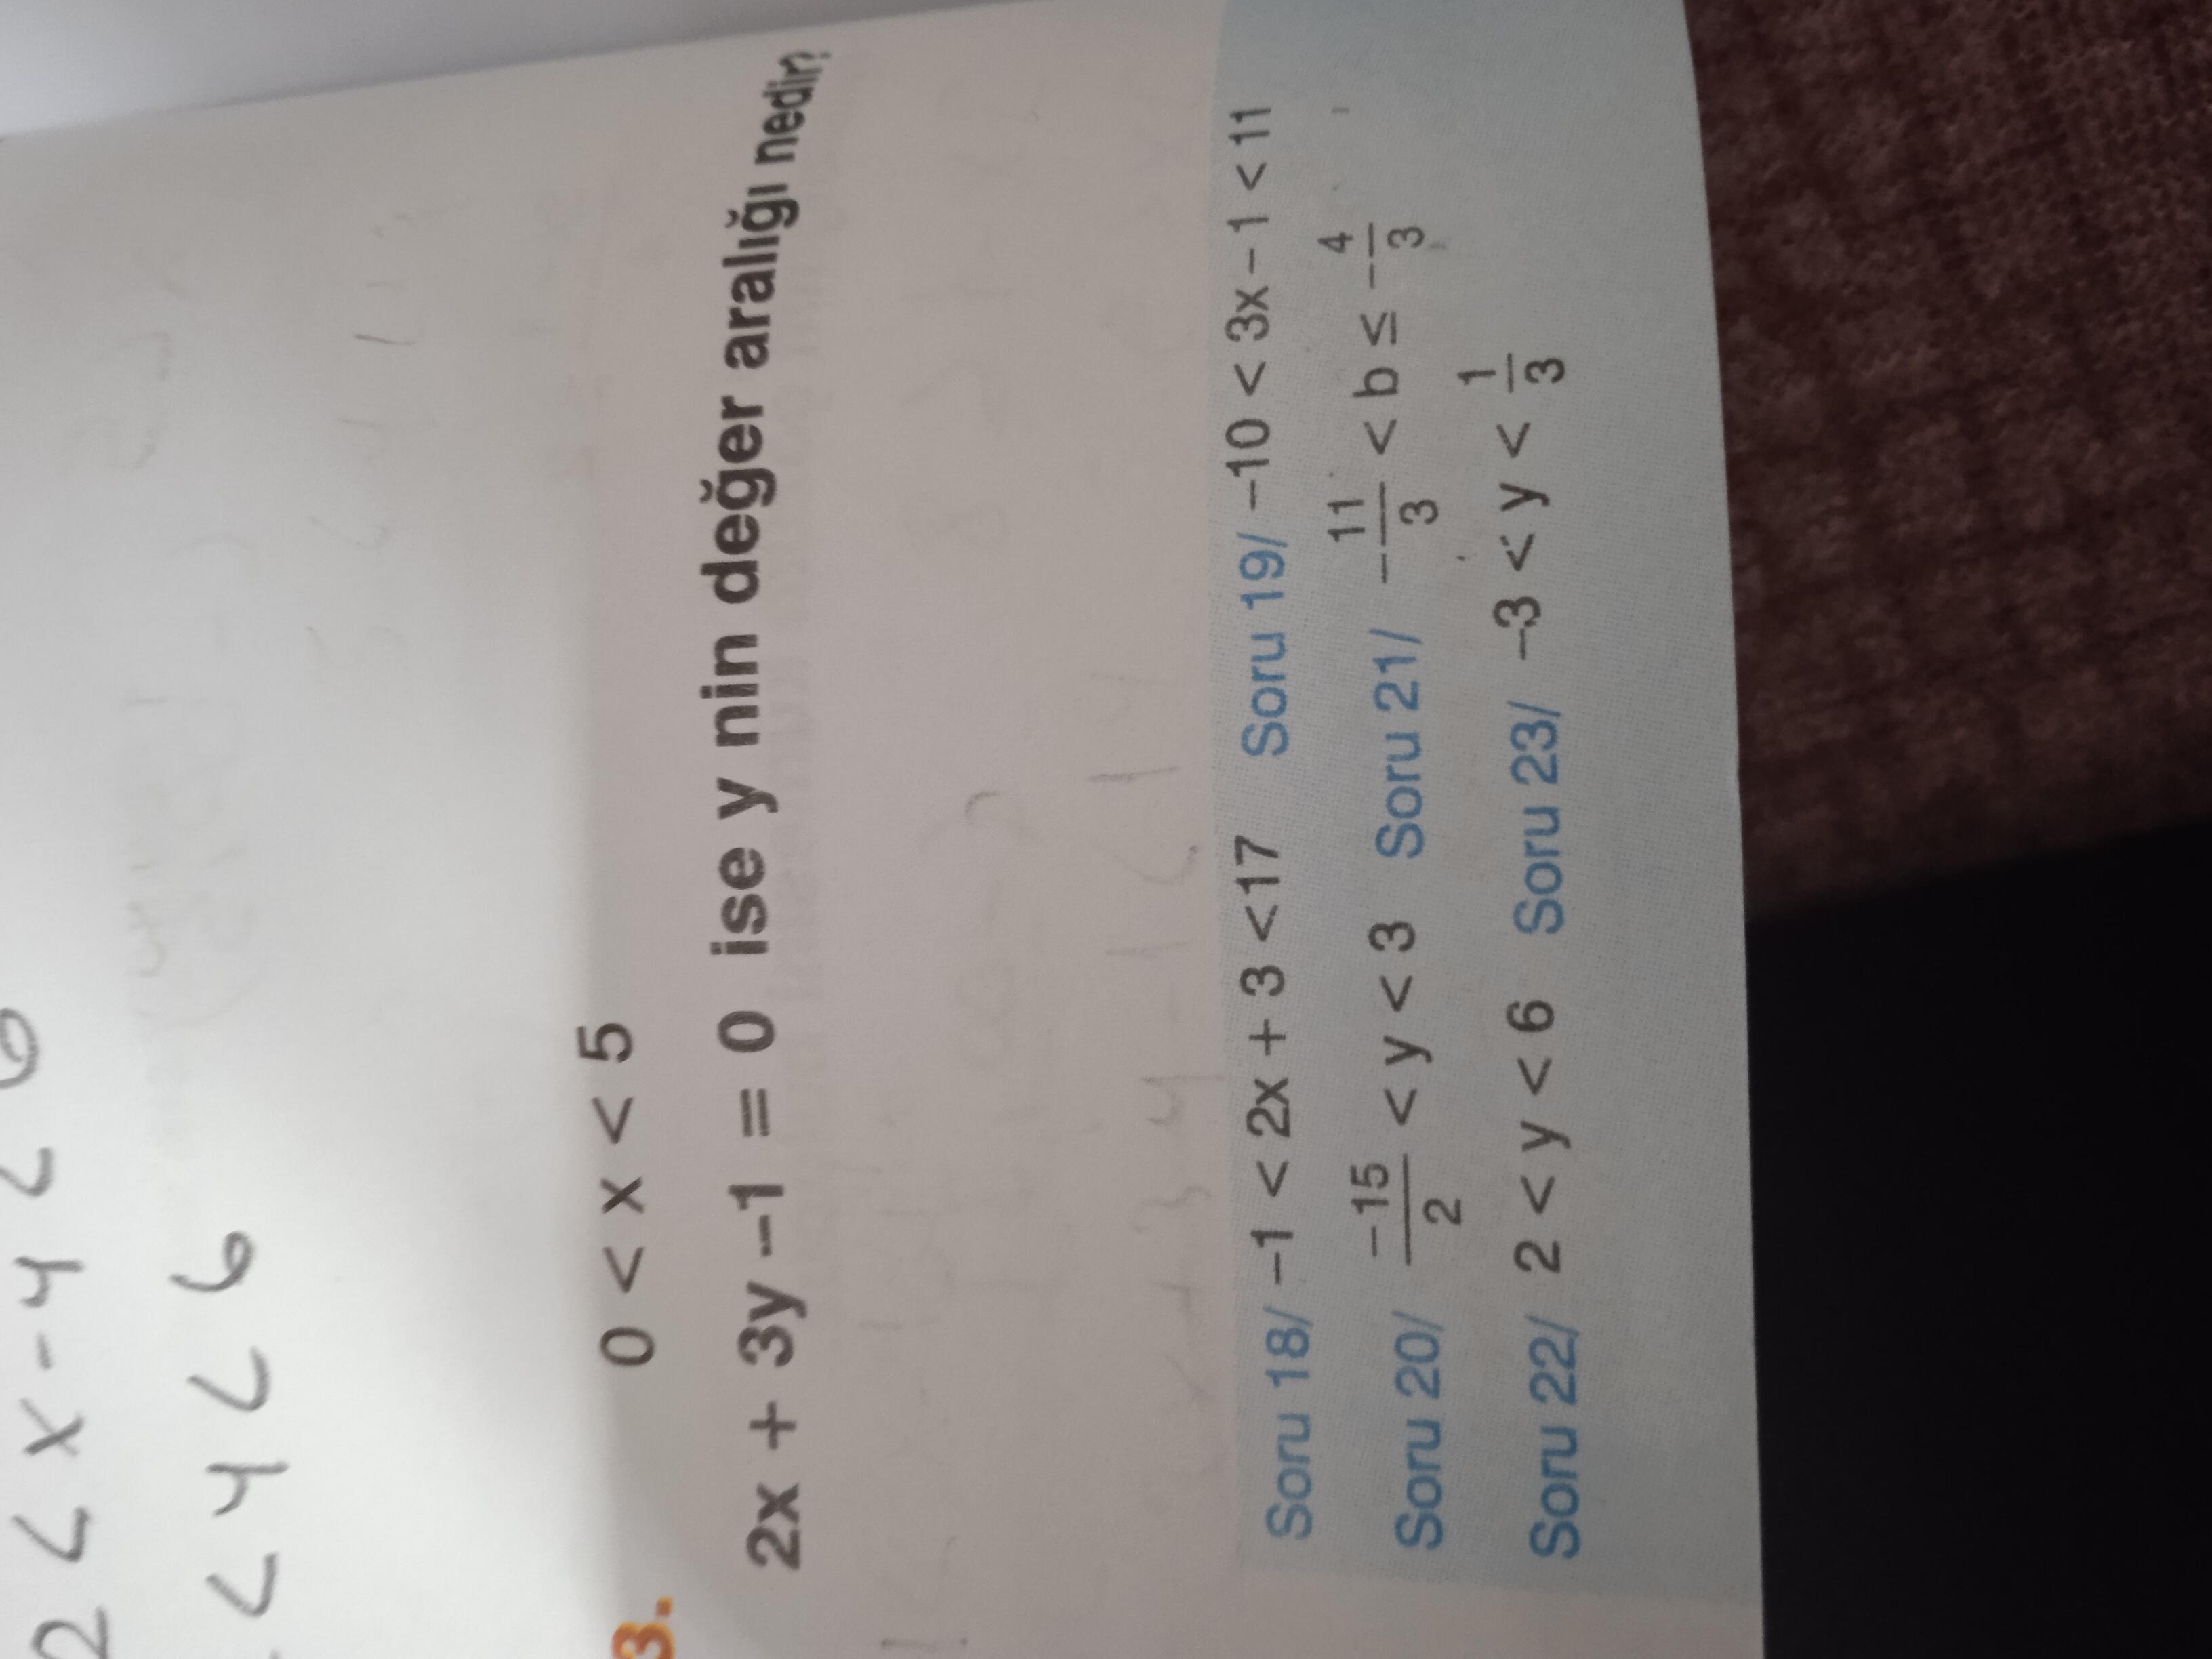 2 < x - y < 6
< y < 6
3. 0 < x < 5
2x + 3y - 1 = 0 ise y nin değer aralığı nedir?
Soru 18/ -1 < 2x + 3 < 17 Soru 19/ -10 < 3x - 1 < 11
Soru 20/ -15/2 < y < 3 Soru 21/ -11/3 < b ≤ -4/3
Soru 22/ 2 < y < 6 Soru 23/ -3 < y < 1/3